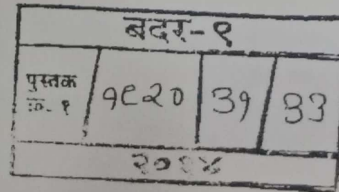 बदर-१
पुस्तक क्र. १ १९२० ३१ ३३
२०१४